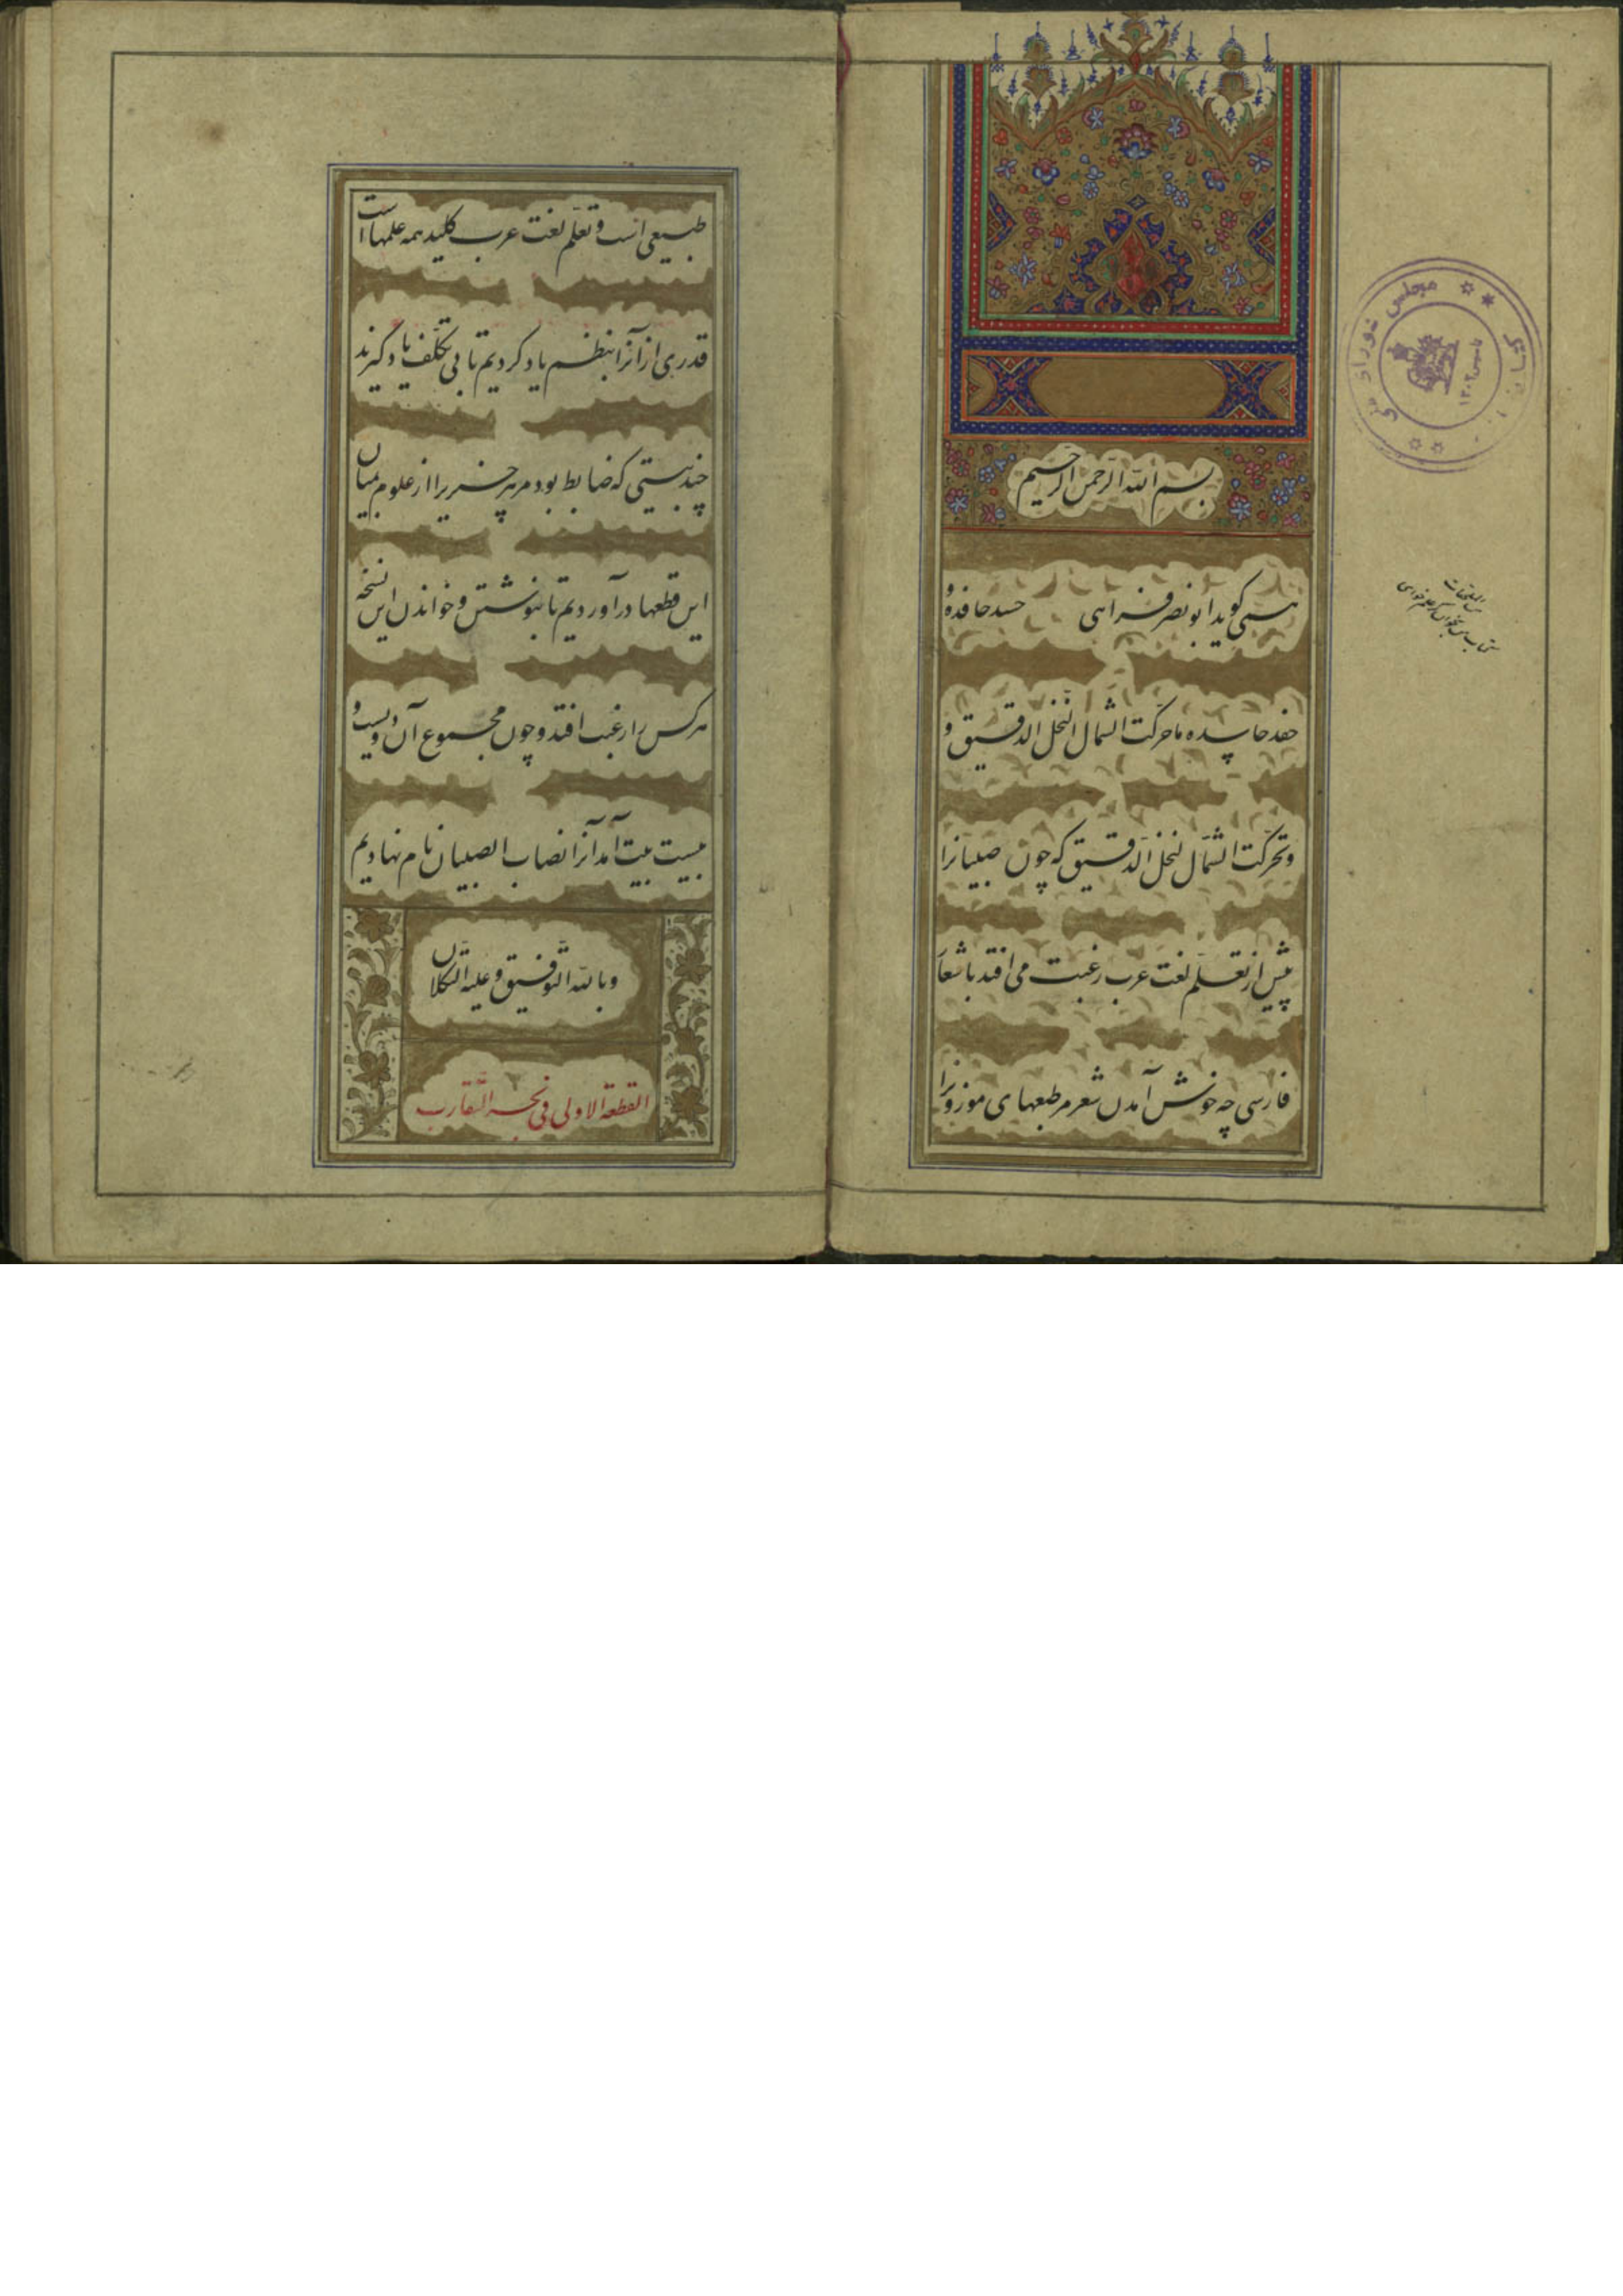 بسم الله الرحمن الرحیم
همی کوید ابونصر فراهی حسد حافده و
حفد حاسده ماحرکت الشمال النخل الدقیق و
وتحرکت الشمال لنخل الدقیق که چون صبیانرا
پیش از تعلم لغت عرب رغبت می افتد باشعار
فارسی چه خوش آمدن شعر مر طبعهای موزونرا
طبیعی است و تعلم لغت عرب کلید همه علمها است
قدری از آنرا بنظم یاد کردیم تا بی تکلف یاد گیرند
چند بیتی که ضابط بود مر هر چیزیرا از علوم بمیان
این قطعها درآوردیم تا بنوشتن و خواندن این نسخه
هرکس را رغبت افتد و چون مجموع آن دویست و
بیست بیت آمد آنرا نصاب الصبیان نام نهادیم
وبالله التوفیق وعلیه التکلان
القطعة الاولی فی بحر التقارب
مجلس شورای ملی
تاسیس ۱۳۰۲